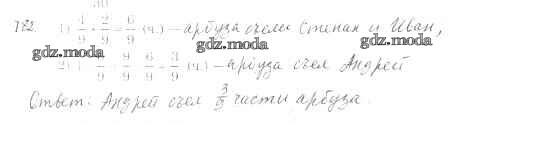 30
782. 1) 4/9 + 2/9 = 6/9 (ч.) – арбуза съели Степан и Иван,
gdz.moda gdz.moda gdz.moda
2) 1 9/9 6/9 = 3/9 (ч.) – арбуза съел Андрей
gdz.moda gdz.moda
Ответ: Андрей съел 3/9 части арбуза.